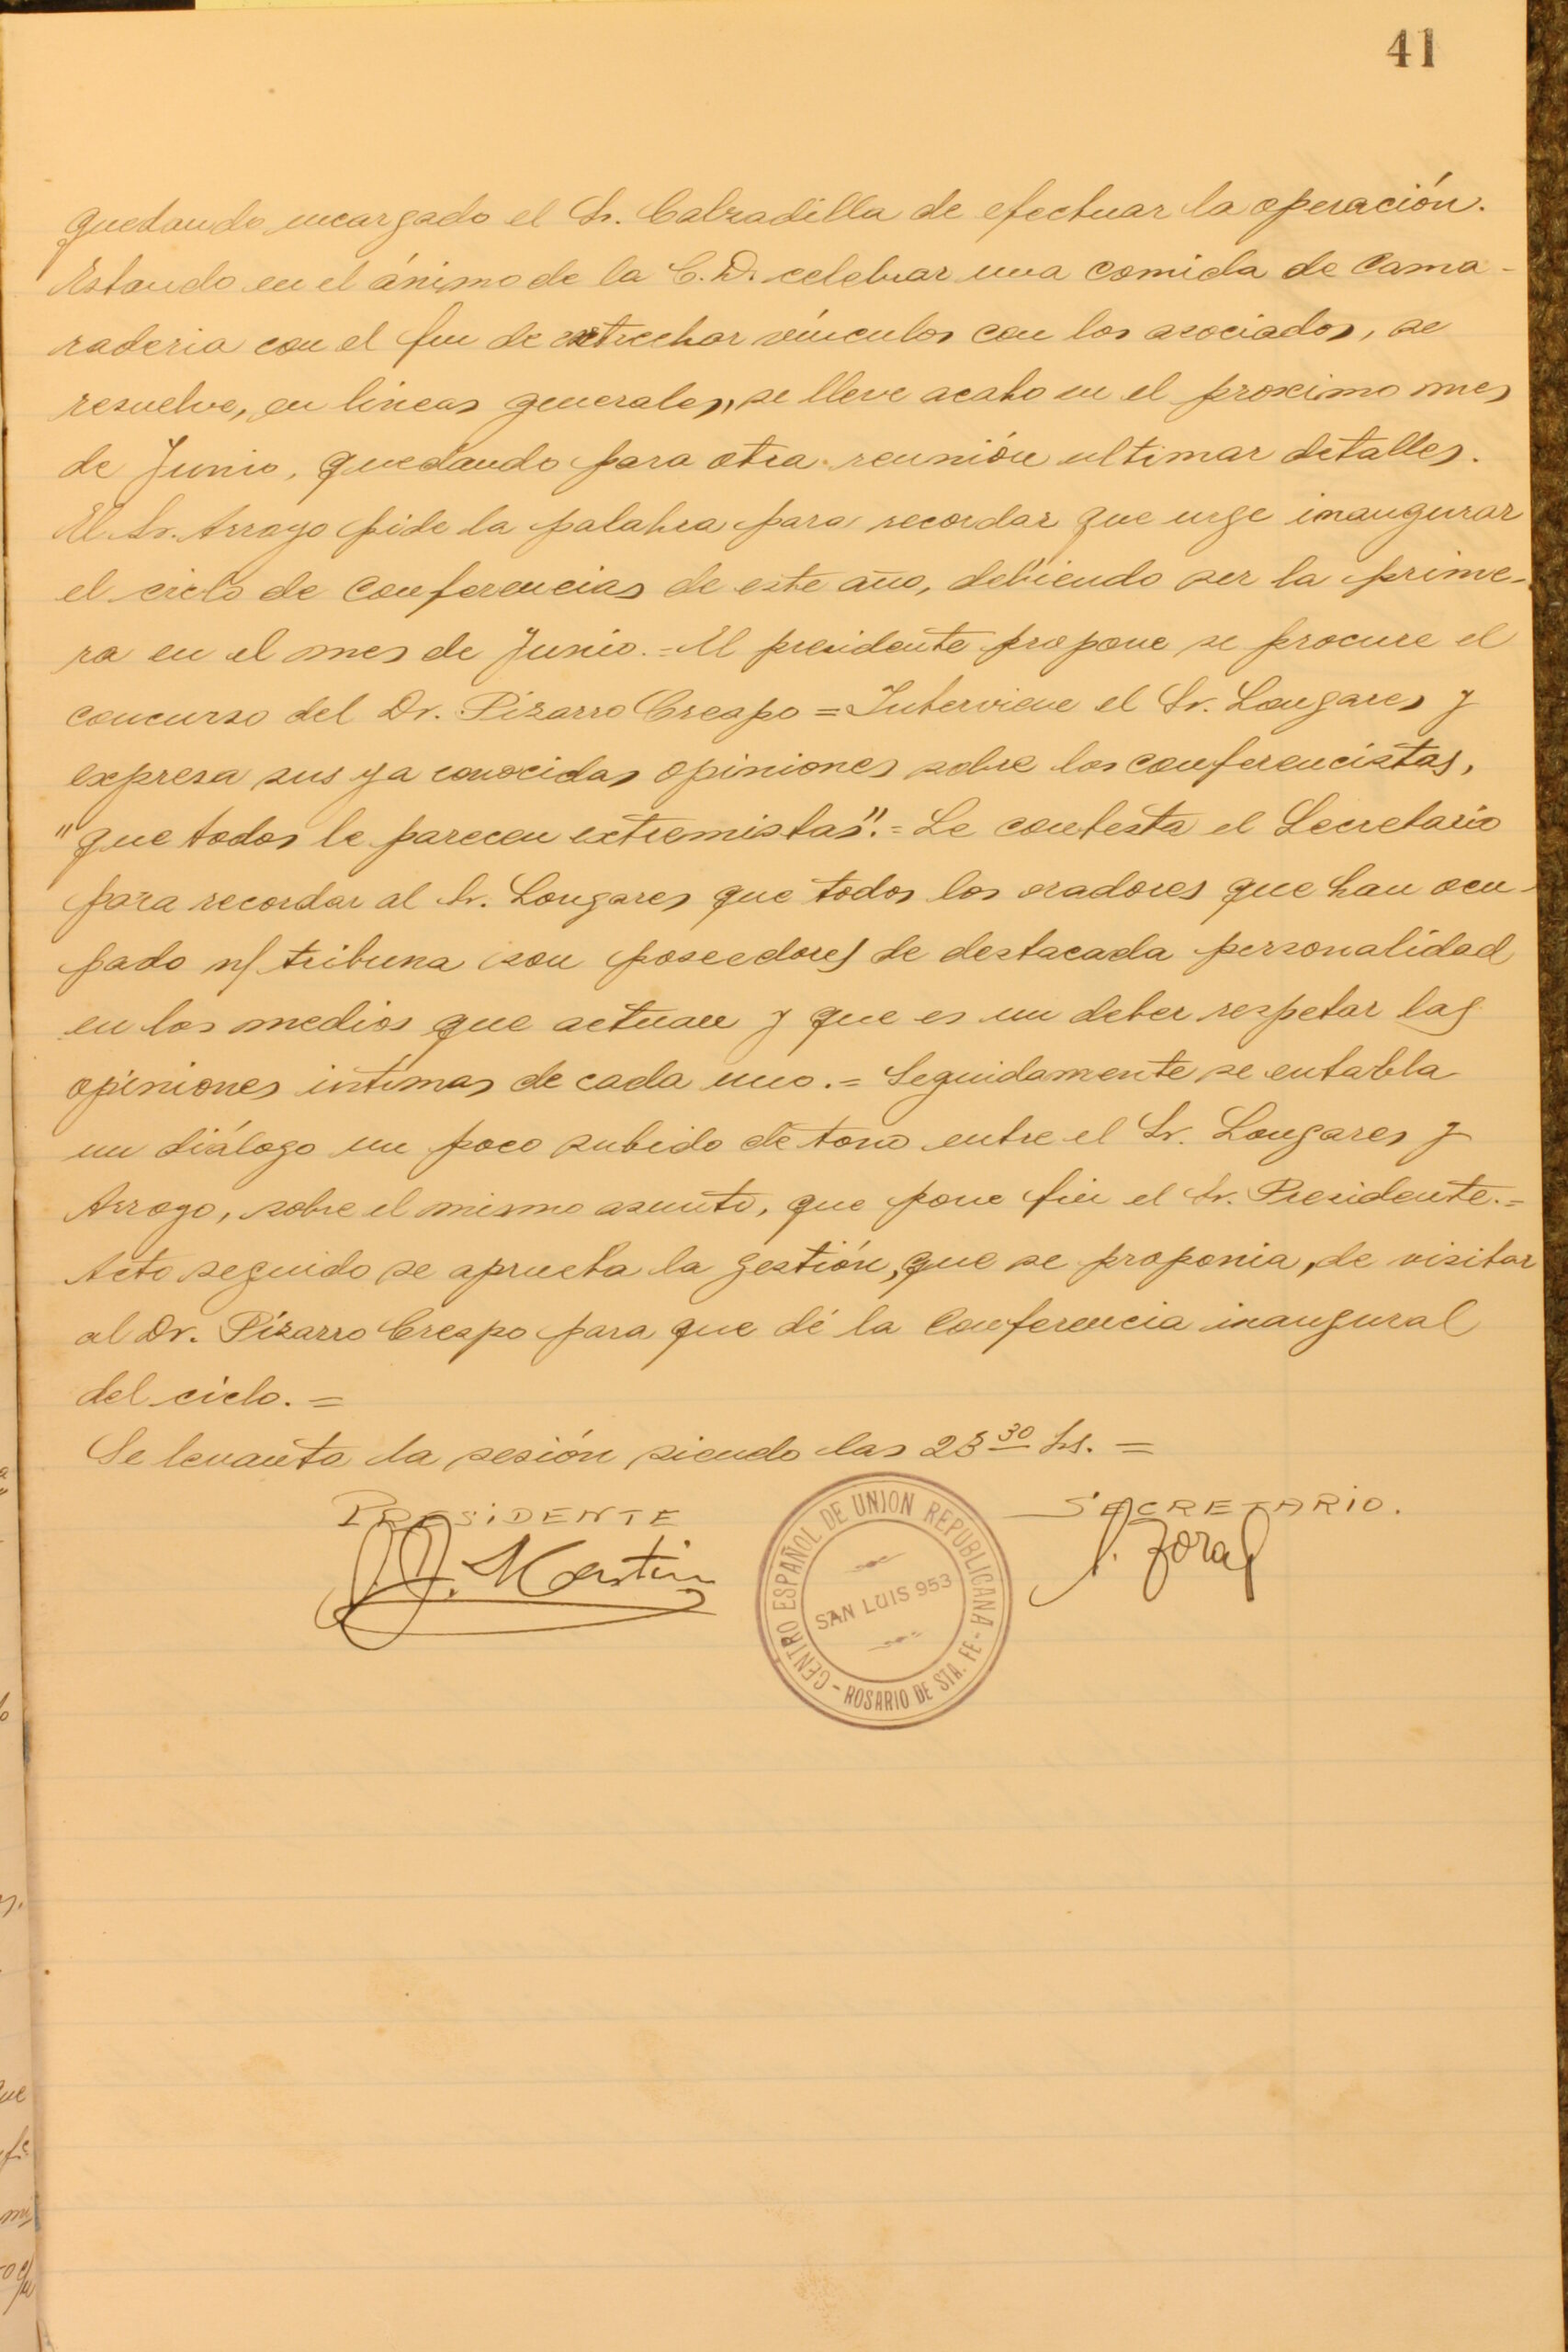 41
quedando encargado el Sr. Calzadilla de efectuar la operación.
Estando en el ánimo de la C.D. celebrar una comida de Cama-
raderia con el fin de estrechar vínculos con los asociados, se
resuelve, en lineas generales, se lleve acabo en el proximo mes
de Junio, quedando para otra reunión ultimar detalles.
El Sr. Arroyo pide la palabra para recordar que urge inaugurar
el ciclo de Conferencias de este año, debiendo ser la prime-
ra en el mes de Junio.= El presidente propone se procure el
concurso del Dr. Pizarro Crespo = Interviene el Sr. Longares y
expresa sus ya conocidas opiniones sobre los conferencistas,
"que todos le parecen extremistas".= Le contesta el Secretario
para recordar al Sr. Longares que todos los oradores que han ocu-
pado n/ tribuna son poseedores de destacada personalidad
en los medios que actuan y que es un deber respetar las
opiniones intimas de cada uno.= Seguidamente se entabla
un diálogo un poco subido de tono entre el Sr. Longares y
Arroyo, sobre el mismo asunto, que pone fin el Sr. Presidente.=
Acto seguido se aprueba la gestión, que se proponia, de visitar
al Dr. Pizarro Crespo para que dé la Conferencia inaugural
del ciclo.=
Se levanta la sesión siendo las 23 30 hs. =
PRESIDENTE
SECRETARIO.
Martin
CENTRO ESPAÑOL DE UNION REPUBLICANA
SAN LUIS 953
- ROSARIO DE STA. FE -